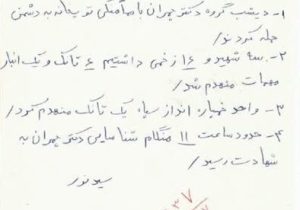 ۱- دیشب گروه دکتر چمران با هماهنگی توپخانه به دشمن
حمله کرد نور/
۲- سه شهید و ۱۶ زخمی داشتیم ۶ تانک و یک انبار
مهمات منهدم شد/
۳- واحد خمپاره انداز سپاه یک تانک منهدم کرد/
۴- حدود ساعت ۱۱ هنگام شناسایی دکتر چمران به
شهادت رسید/
سید نور
۳۷